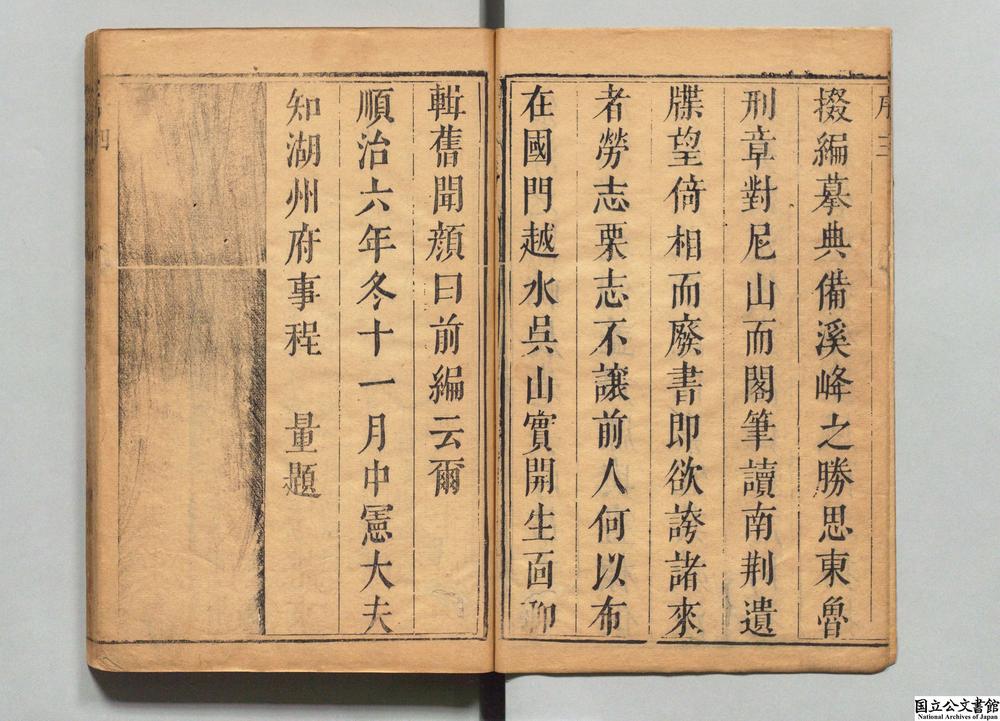 掇編摹典備溪峰之勝思東魯
刑章對尼山而閣筆讀南荆遺
牒望倚相而廢書即欲誇諸來
者勞志栗志不讓前人何以布
在國門越水吳山實開生面聊
輯舊聞顏曰前編云爾
順治六年冬十一月中憲大夫
知湖州府事程　量題
国立公文書館
National Archives of Japan